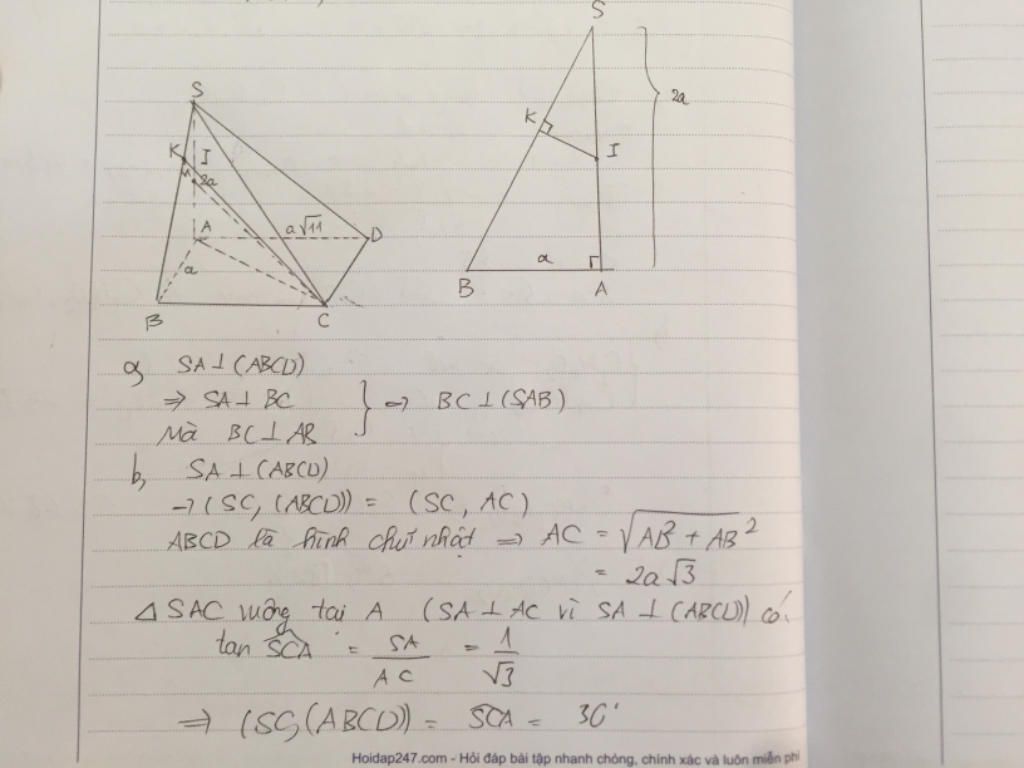 S
K
I
2a
A
a√11
D
a
B
C
S
2a
K
I
a
B
A
a, SA ⊥ (ABCD)
⇒ SA ⊥ BC } ⇒ BC ⊥ (SAB)
Mà BC ⊥ AB
b, SA ⊥ (ABCD)
→ (SC, (ABCD)) = (SC, AC)
ABCD là hình chữ nhật ⇒ AC = √AB² + AB²
= 2a√3
Δ SAC vuông tại A (SA ⊥ AC vì SA ⊥ (ABCD)) có:
tan SCA = SA/AC = 1/√3
⇒ (SC, (ABCD)) = SCA = 30°
Hoidap247.com - Hỏi đáp bài tập nhanh chóng, chính xác và luôn miễn phí